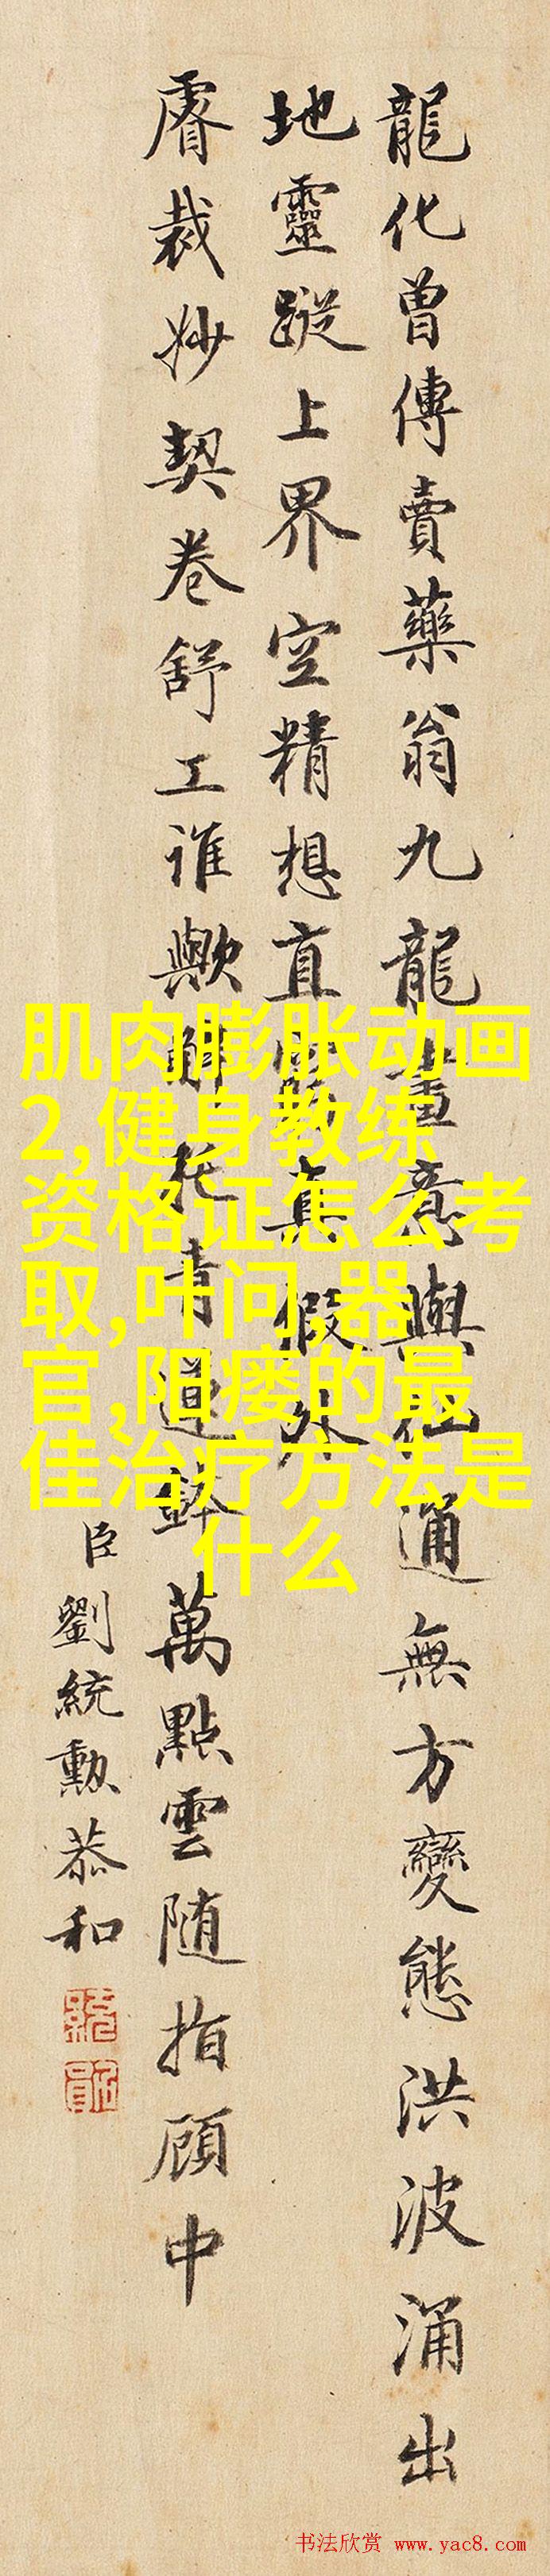 龍化曾傳賣藥翁九龍畫意與化通無方變態洪波涌出
地靈蹤上界空精想直真假外
睿裁妙契卷舒工谁歟托青蓮鉢萬點雲随指顧中
臣劉統勲恭和
肌肉膨胀动画
2,健身教练
资格证怎么考
取,叶问,器
官,阳痿的最
佳治疗方法是
什么
书法欣赏 www.yac8.com